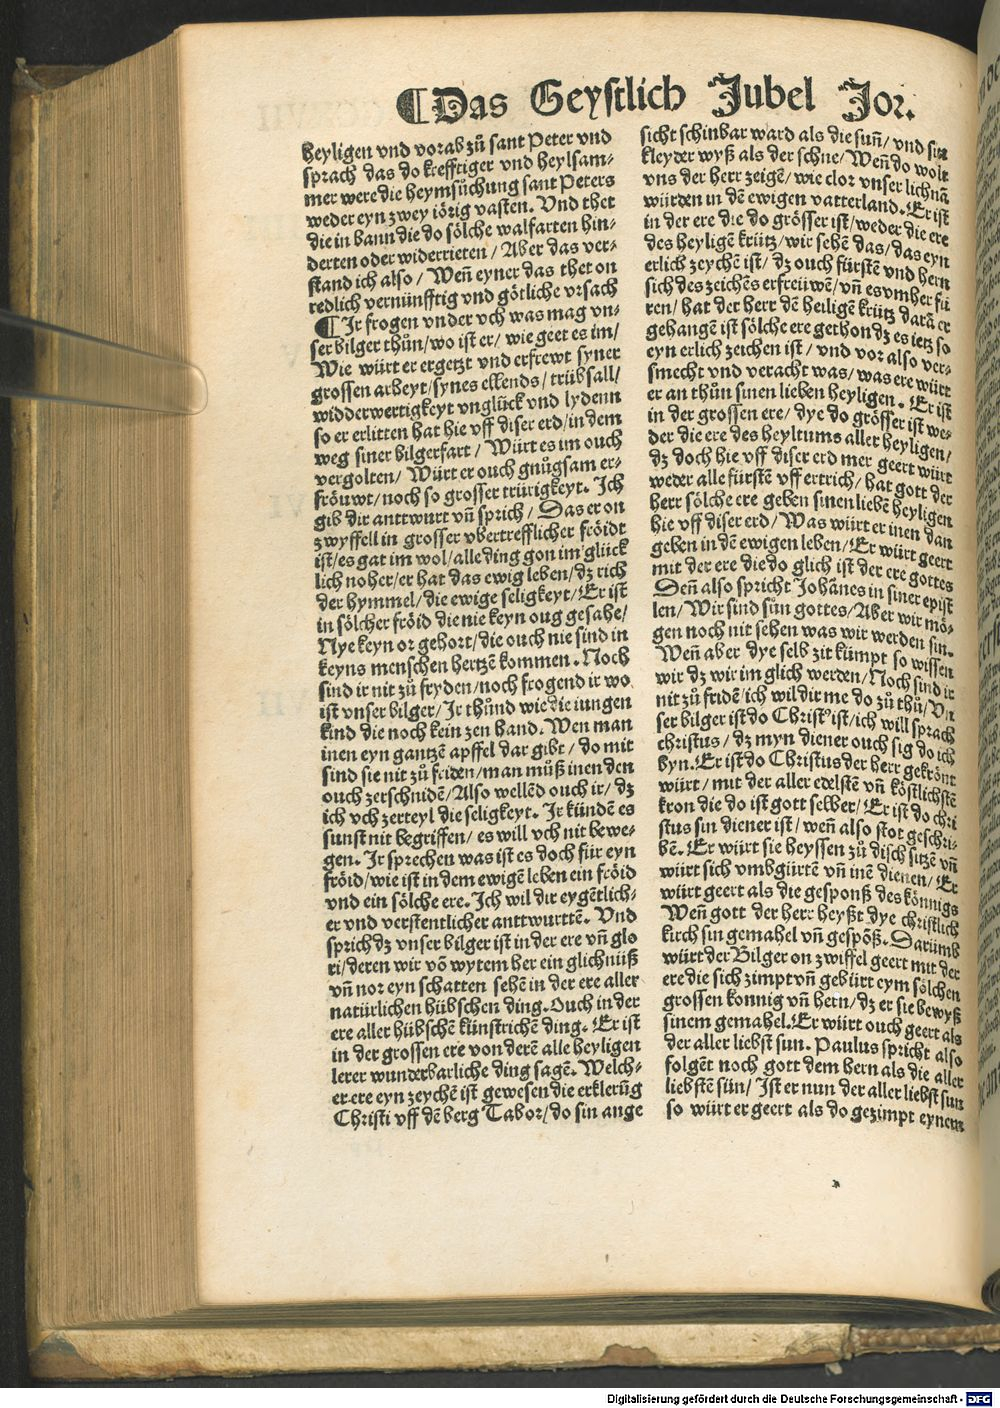 ¶Das Geystlich Jubel Jor.
heyligen vnd vorab zů sant Peter vnd
sprach das do krefftiger vnd heylsam-
mer were die heymsůchung sant Peters
weder eyn zwey iörig vasten. Vnd thet
die in bann die do sölche walfarten hin-
derten oder widerrieten / Aber das ver-
stand ich also / Weñ eyner das thet on
redlich vernünfftig vnd götliche vrsach
¶Ir frogen vnder vch was mag vn-
ser bilger thůn / wo ist er / wie geet es im /
Wie würt er ergetzt vnd erfrewt syner
grossen arbeyt / synes ellends / trübsall /
widderwertigkeyt vnglück vnd lydenn
so er erlitten hat hie vff diser erd / in dem
weg siner bilgerfart / Würt es im ouch
vergolten / Würt er ouch gnůgsam er-
fröuwt / noch so grosser trürigkeyt. Ich
gib dir anttwurt vñ sprich / Das er on
zwyffell in grosser vbertrefflicher fröidt
ist / es gat im wol / alle ding gon im glück
lich noher / er hat das ewig leben / dz rich
der hymmel / die ewige seligkeyt / Er ist
in sölcher fröid die nie keyn oug gesahe /
Nye keyn or gehort / die ouch nie sind in
keyns menschen hertzē kommen. Noch
sind ir nit zů fryden / noch frogend ir wo
ist vnser bilger / Ir thůnd wie die iungen
kind die noch kein zen hand. Wen man
inen eyn gantzē apffel dar gibt / do mit
sind sie nit zů friden / man můß inen den
ouch zerschnidē / Also wellēd ouch ir / dz
ich vch zerteyl die seligkeyt. Ir kündē es
sunst nit begriffen / es will vch nit bewe-
gen. Ir sprechen was ist es doch für eyn
fröid / wie ist in dem ewigē leben ein fröid
vnd ein sölche ere. Ich wil dir eygētlich-
er vnd verstentlicher anttwurttē. Vnd
sprich dz vnser bilger ist in der ere vñ glo
ri / deren wir vō wytem her ein glichnüß
vñ nor eyn schatten sehē in der ere aller
natürlichen hübschen ding. Ouch in der
ere aller hübschē künstrichē ding. Er ist
in der grossen ere von derē alle heyligen
lerer wunderbarliche ding sagē. Welch-
er ere eyn zeychē ist gewesen die erklerūg
Christi vff dē berg Tabor / do sin ange
sicht schinbar ward als die suñ / vnd sin
kleyder wyß als der schne / Weñ do wolt
vns der herr zeigē / wie clor vnser lichnā
würden in dē ewigen vatterland. Er ist
in der ere die do grösser ist / weder die ere
des heyligē krütz / wir sehē das / das eyn
erlich zeychē ist / dz ouch fürstē vnd hern
sich des zeichēs erfreiiwē / vñ es vmher fü
ren / hat der herr dē heiligē krütz darā er
gehangē ist sölche ere gethon dz es ietz so
eyn erlich zeichen ist / vnd vor also ver-
smecht vnd veracht was / was ere würt
er an thůn sinen lieben heyligen. Er ist
in der grossen ere / dye do grösser ist we-
der die ere des heyltums aller heyligen /
dz doch hie vff diser erd mer geert würt
weder alle fürstē vff ertrich / hat gott der
herr sölche ere geben sinen liebē heyligen
hie vff diser erd / Was würt er inen dan
geben in dē ewigen leben / Er würt geert
mit der ere die do glich ist der ere gottes
Deñ also spricht Johānes in siner epist
len / Wir sind sün gottes / Aber wir mö-
gen noch nit sehen was wir werden sin.
Weñ aber dye selb zit kümpt so wissen
wir dz wir im glich werden / Noch sind ir
nit zů fridē / ich wil dir me do zů thů / Vn
ser bilger ist do Christ⁹ ist / ich will sprach
christus / dz myn diener ouch sig do ich
byn. Er ist do Christus der herr gekrönt
würt / mit der aller edelstē vñ köstlichstē
kron die do ist gott selber / Er ist do chri
stus sin diener ist / weñ also stot geschri-
bē. Er würt sie heyssen zů disch sitzē vñ
würt sich vmbgürtē vñ inē dienen / Er
würt geert als die gesponß des könnigs
Weñ gott der herr heyßt dye christlich
kirch sin gemahel vñ gespōß. Darūmb
würt der Bilger on zwiffel geert mit der
ere die sich zimpt vñ gebürt eym sölchen
grossen konnig vñ hern / dz er sie bewyß
sinem gemahel. Er würt ouch geert als
der aller liebst sun. Paulus spricht also
folgēt noch gott dem hern als die aller
liebstē sün / Ist er nun der aller liebst sun
so würt er geert als do gezimpt eynem
Digitalisierung gefördert durch die Deutsche Forschungsgemeinschaft - DFG